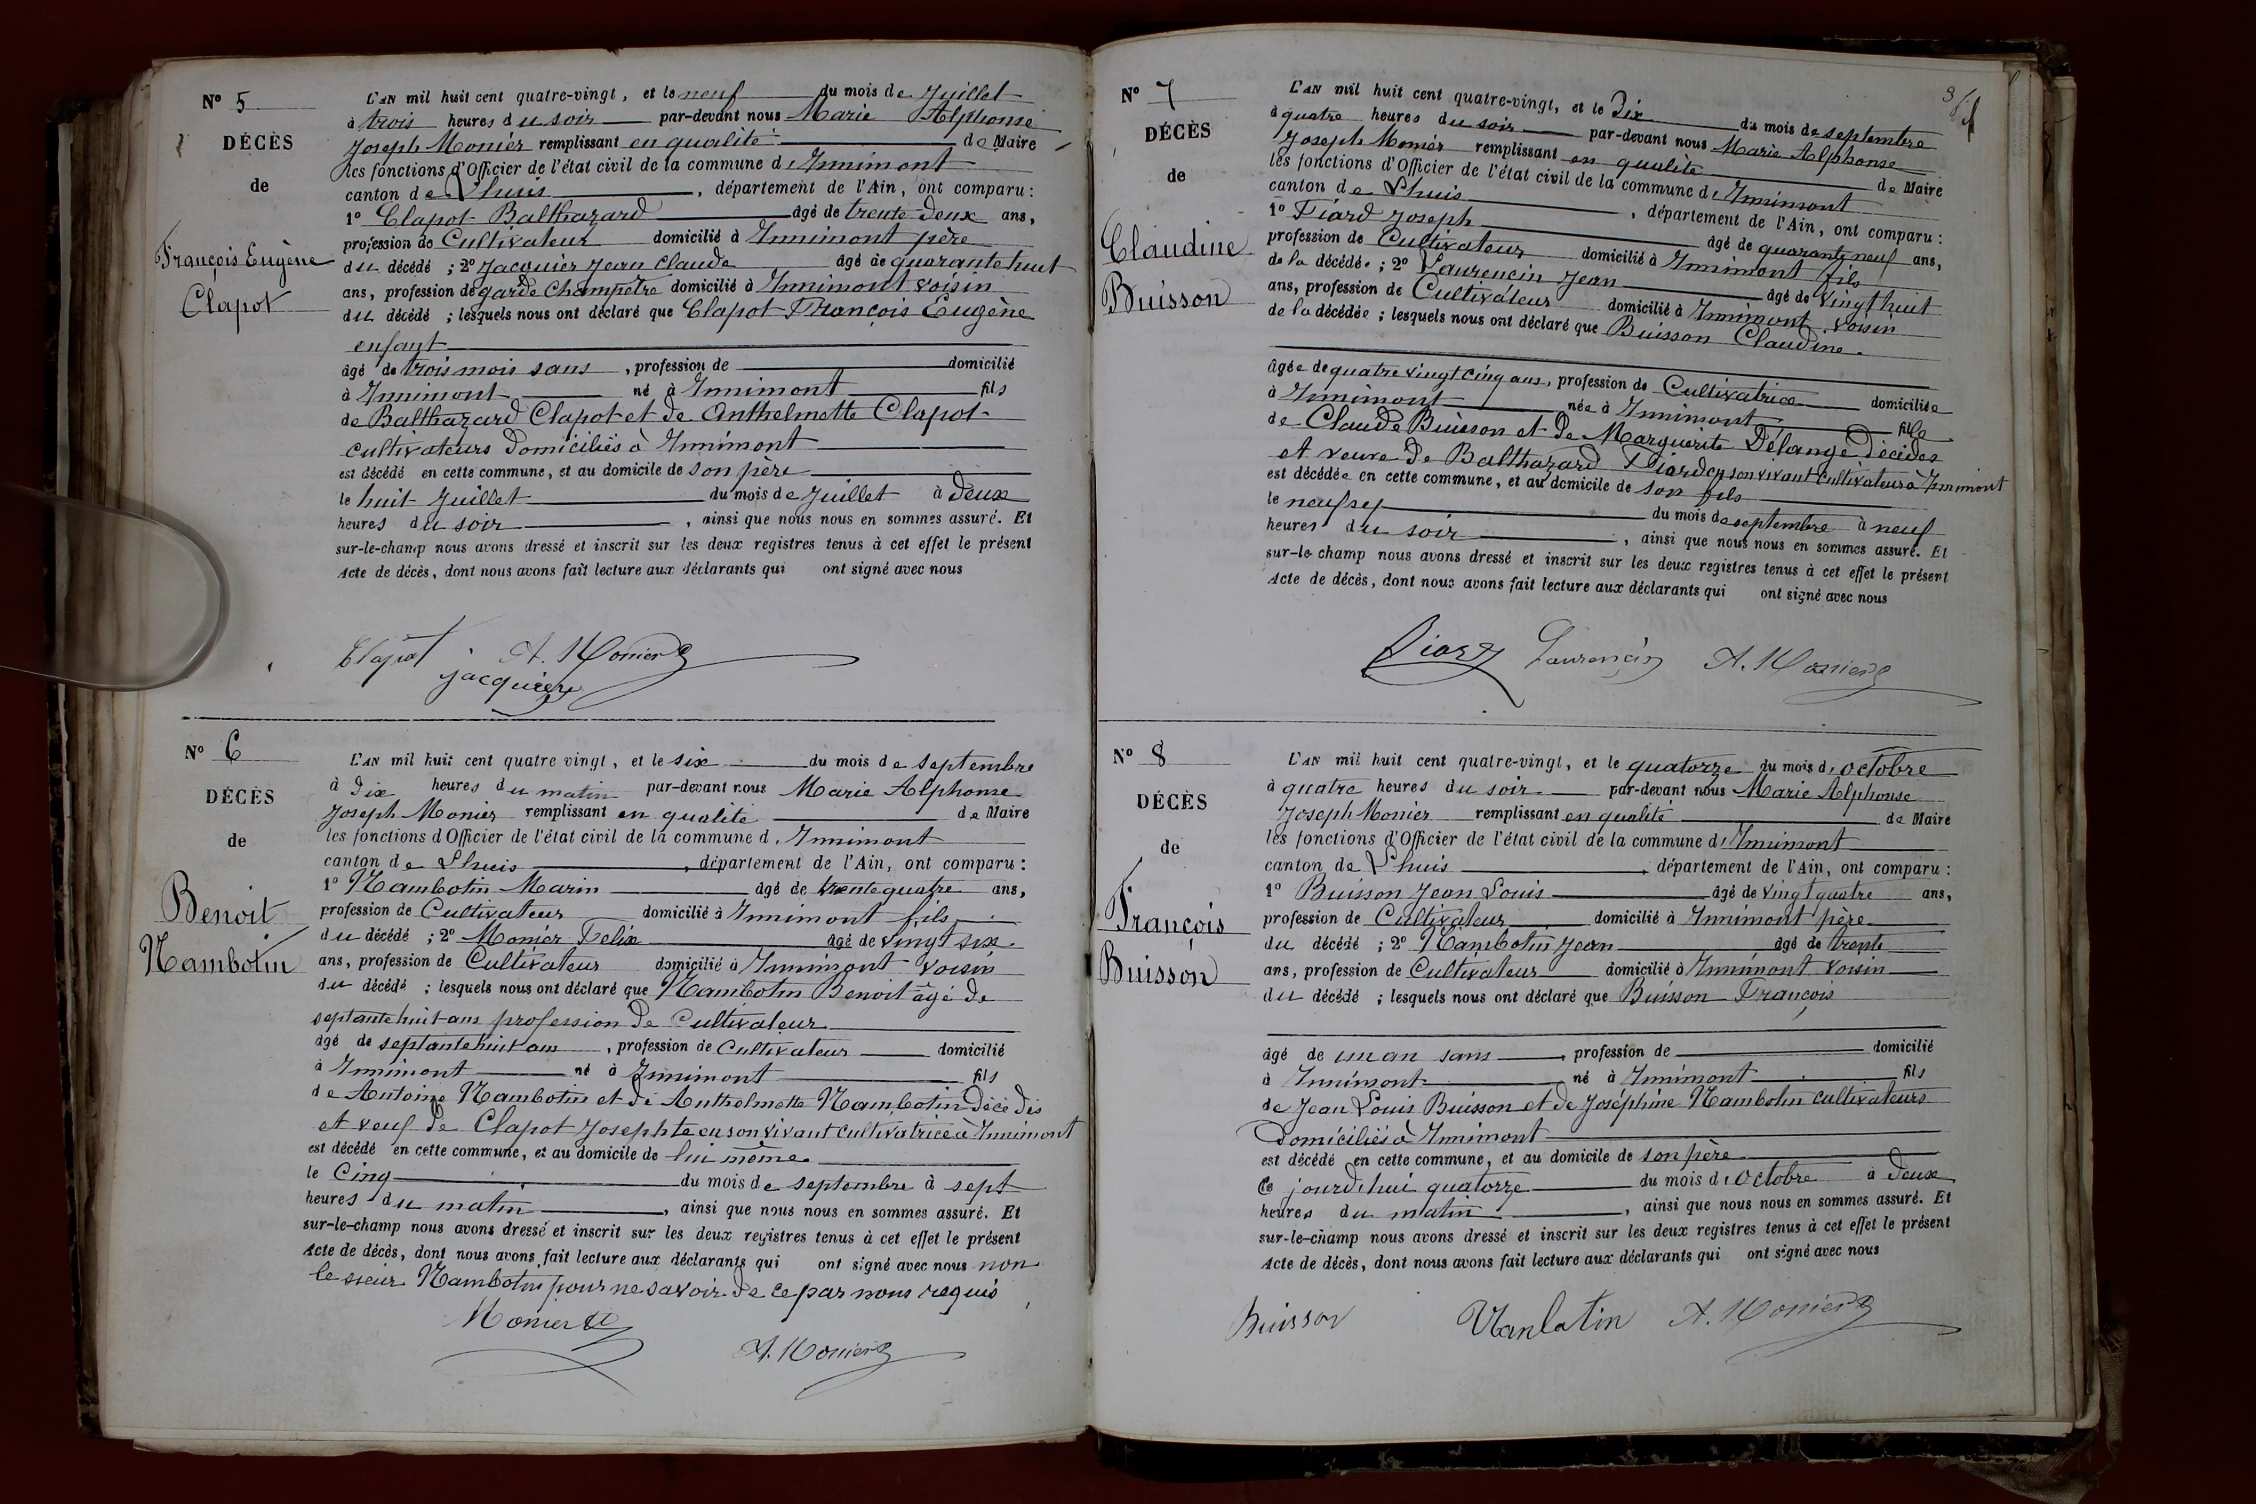 N° 5
DÉCÈS
de
François Eugène
Clapot
L'AN mil huit cent quatre-vingt, et le neuf du mois de Juillet
à trois heures du soir par-devant nous Marie Alphonse
Joseph Monier remplissant en qualité de Maire
les fonctions d'Officier de l'état civil de la commune d'Innimont
canton de Lhuis, département de l'Ain, ont comparu :
1° Clapot Balthazard âgé de trente deux ans,
profession de Cultivateur domicilié à Innimont père
du décédé ; 2° Jacquier Jean Claude âgé de quarante huit
ans, profession de garde Champêtre domicilié à Innimont voisin
du décédé ; lesquels nous ont déclaré que Clapot François Eugène
enfant
âgé de trois mois sans, profession de domicilié
à Innimont né à Innimont fils
de Balthazard Clapot et de Anthelmette Clapot
cultivateurs domiciliés à Innimont
est décédé en cette commune, et au domicile de son père
le huit Juillet du mois de Juillet à deux
heures du soir, ainsi que nous nous en sommes assuré. Et
sur-le-champ nous avons dressé et inscrit sur les deux registres tenus à cet effet le présent
Acte de décès, dont nous avons fait lecture aux déclarants qui ont signé avec nous
Clapot A. Monier
Jacquier
N° 6
DÉCÈS
de
Benoit
Nambotin
L'AN mil huit cent quatre vingt, et le six du mois de septembre
à dix heures du matin par-devant nous Marie Alphonse
Joseph Monier remplissant en qualité de Maire
les fonctions d'Officier de l'état civil de la commune d'Innimont
canton de Lhuis, département de l'Ain, ont comparu :
1° Nambotin Marin âgé de trente quatre ans,
profession de Cultivateur domicilié à Innimont fils
du décédé ; 2° Monier Felix âgé de vingt six
ans, profession de Cultivateur domicilié à Innimont voisin
du décédé ; lesquels nous ont déclaré que Nambotin Benoit âgé de
septante huit ans profession de Cultivateur
âgé de septante huit ans, profession de Cultivateur domicilié
à Innimont né à Innimont fils
de Antoine Nambotin et de Anthelmette Nambotin décédés
et veuf de Clapot Josephte en son vivant cultivatrice à Innimont
est décédé en cette commune, et au domicile de lui même
le Cinq du mois de septembre à sept
heures du matin, ainsi que nous nous en sommes assuré. Et
sur-le-champ nous avons dressé et inscrit sur les deux registres tenus à cet effet le présent
Acte de décès, dont nous avons fait lecture aux déclarants qui ont signé avec nous non
le sieur Nambotin pour ne savoir de ce par nous requis
Monier
A. Monier
N° 7
DÉCÈS
de
Claudine
Buisson
L'AN mil huit cent quatre-vingt, et le Dix du mois de septembre
à quatre heures du soir par-devant nous Marie Alphonse
Joseph Monier remplissant en qualité de Maire
les fonctions d'Officier de l'état civil de la commune d'Innimont
canton de Lhuis, département de l'Ain, ont comparu :
1° Fiard Joseph âgé de quarante neuf ans,
profession de Cultivateur domicilié à Innimont fils
de la décédée ; 2° Laurencin Jean âgé de vingt huit
ans, profession de Cultivateur domicilié à Innimont voisin
de la décédée ; lesquels nous ont déclaré que Buisson Claudine
âgée de quatre vingt cinq ans, profession de Cultivatrice domiciliée
à Innimont née à Innimont fille
de Claude Buisson et de Marguerite Délange décédés
et veuve de Balthazard Fiard en son vivant cultivateur à Innimont
est décédée en cette commune, et au domicile de son fils
le neuf sep du mois de septembre à neuf
heures du soir, ainsi que nous nous en sommes assuré. Et
sur-le-champ nous avons dressé et inscrit sur les deux registres tenus à cet effet le présent
Acte de décès, dont nous avons fait lecture aux déclarants qui ont signé avec nous
Fiard Laurencin A. Monier
N° 8
DÉCÈS
de
François
Buisson
L'AN mil huit cent quatre-vingt, et le quatorze du mois d'octobre
à quatre heures du soir par-devant nous Marie Alphonse
Joseph Monier remplissant en qualité de Maire
les fonctions d'Officier de l'état civil de la commune d'Innimont
canton de Lhuis, département de l'Ain, ont comparu :
1° Buisson Jean Louis âgé de vingt quatre ans,
profession de Cultivateur domicilié à Innimont père
du décédé ; 2° Nambotin Jean âgé de trente
ans, profession de Cultivateur domicilié à Innimont voisin
du décédé ; lesquels nous ont déclaré que Buisson François
âgé de un an sans, profession de domicilié
à Innimont né à Innimont fils
de Jean Louis Buisson et de Joséphine Nambotin cultivateurs
domiciliés à Innimont
est décédé en cette commune, et au domicile de son père
Ce jourd'hui quatorze du mois d'Octobre à deux
heures du matin, ainsi que nous nous en sommes assuré. Et
sur-le-champ nous avons dressé et inscrit sur les deux registres tenus à cet effet le présent
Acte de décès, dont nous avons fait lecture aux déclarants qui ont signé avec nous
Buisson Nanbotin A. Monier